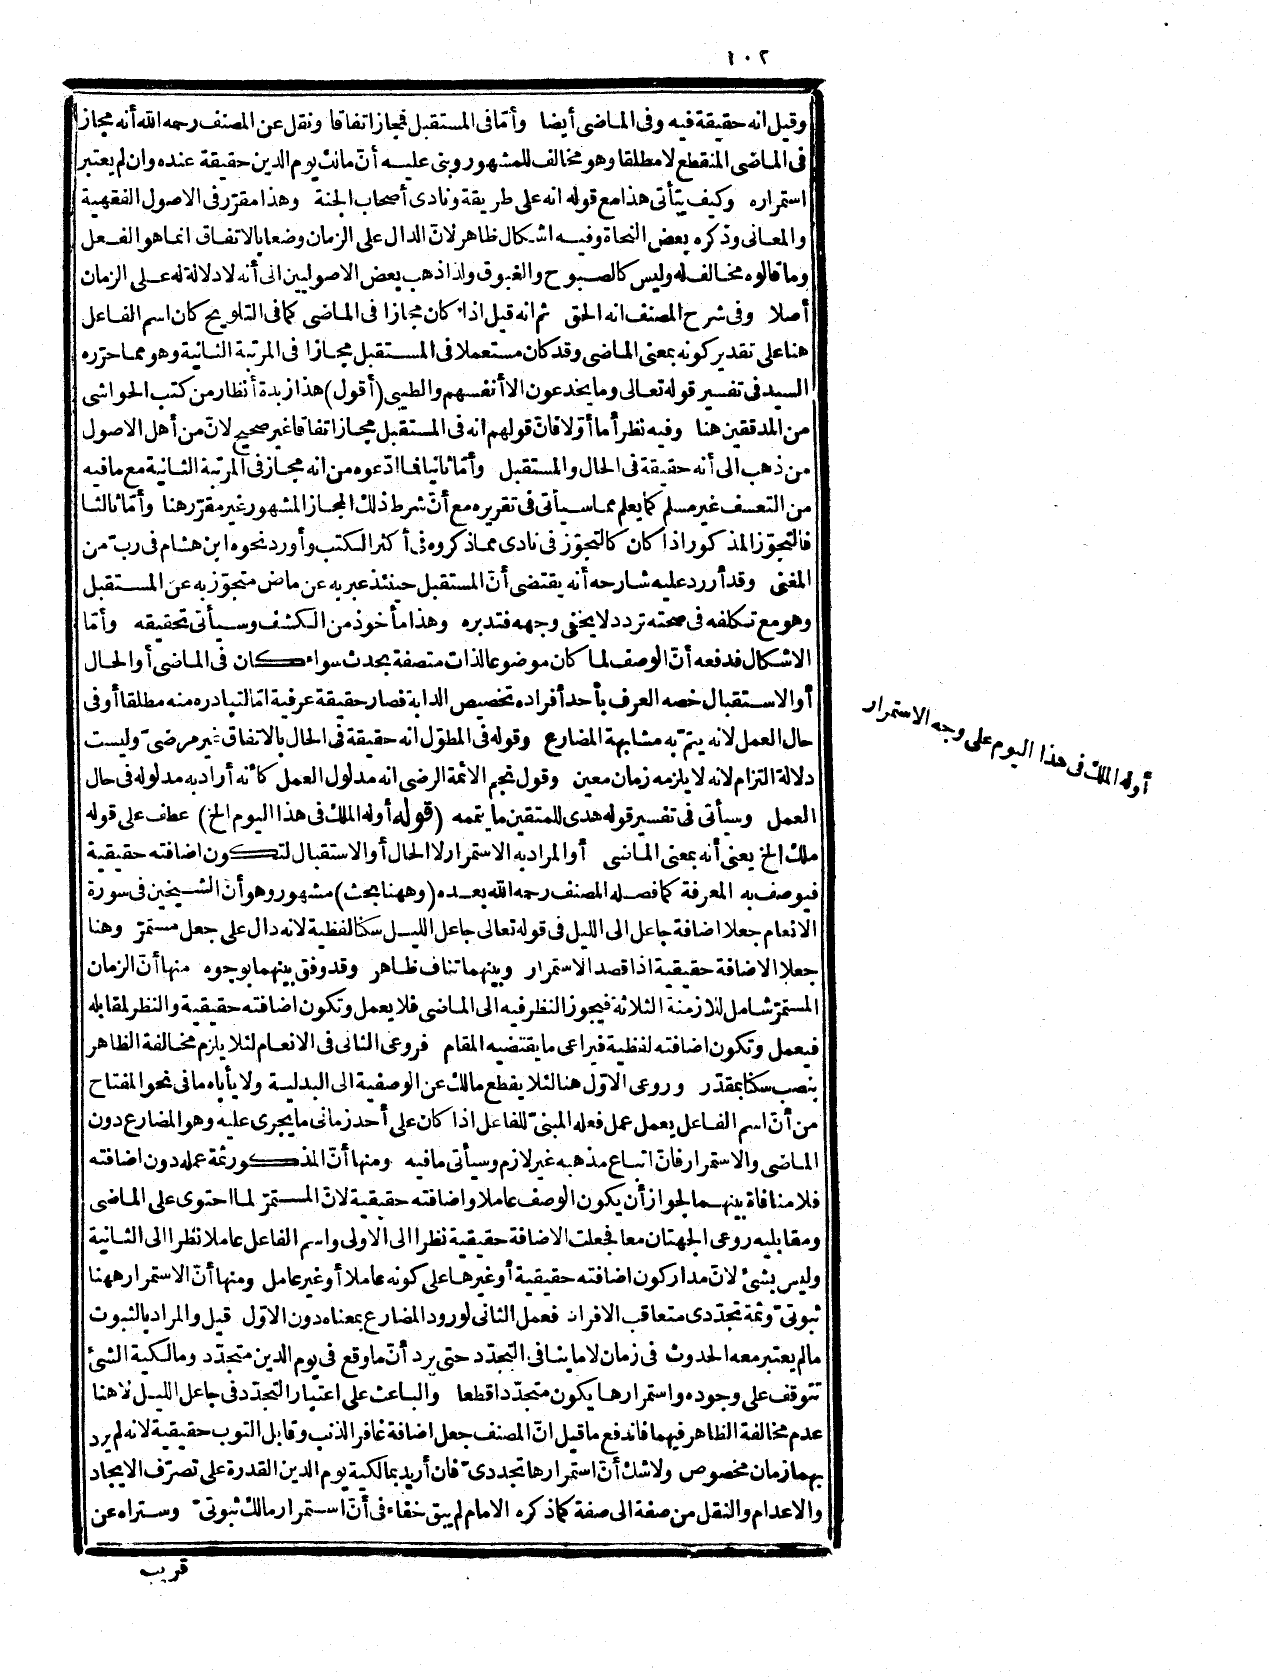 ١٠٢
وقيل انه حقيقة فيه وفى الماضى أيضا وأمّا فى المستقبل فمجاز اتفاقا ونقل عن المصنف رحمه الله أنه مجاز
فى الماضى المنقطع لا مطلقا وهو مخالف للمشهور وبنى عليه أنّ مالك يوم الدين حقيقة عنده وان لم يعتبر
استمراره وكيف يتأتى هذا مع قوله انه على طريقة ونادى أصحاب الجنة وهذا مقرّر فى الاصول الفقهية
والمعانى وذكره بعض النحاة وفيه اشكال ظاهر لانّ الدال على الزمان وضعا بالاتفاق انما هو الفعل
وما قالوه مخالف له وليس كالصبوح والغبوق ولذا ذهب بعض الاصوليين الى أنه لا دلالة له على الزمان
أصلا وفى شرح المصنف انه الحق ثم انه قيل اذا كان مجازا فى الماضى كما فى التلويح كان اسم الفاعل
هنا على تقدير كونه بمعنى الماضى وقد كان مستعملا فى المستقبل مجازا فى المرتبة الثانية وهو مما حرّره
السيد فى تفسير قوله تعالى وما يخدعون الا أنفسهم والطيبى (أقول) هذا زبدة أنظار من كتب الحواشى
من المدققين هنا وفيه نظر أما أوّلا فانّ قولهم انه فى المستقبل مجاز اتفاقا غير صحيح لانّ من أهل الاصول
من ذهب الى أنه حقيقة فى الحال والمستقبل وأمّا ثانيا فما ادّعوه من انه مجاز فى المرتبة الثانية مع ما فيه
من التعسف غير مسلم كما يعلم مما سيأتى فى تقريره مع أنّ شرط ذلك المجاز المشهور غير مقرّر هنا وأمّا ثالثا
فالتجوّز المذكور اذا كان كالتجوّز فى نادى مما ذكروه فى أكثر الكتب وأورد نحوه ابن هشام فى ربّ من
المغنى وقد أورد عليه شارحه أنه يقتضى أنّ المستقبل حينئذ عبر به عن ماض متجوّز به عن المستقبل
وهو مع تكلفه فى صحته تردد لا يخفى وجهه فتدبره وهذا مأخوذ من الكشف وسيأتى تحقيقه وأمّا
الاشكال فدفعه أنّ الوصف لما كان موضوعا لذات متصفة بحدث سواء كان فى الماضى أو الحال
أو الاستقبال خصه العرف بأحد أفراده تخصيص الدابة فصار حقيقة عرفية امّا لتبادره منه مطلقا أو فى
حال العمل لانه يتمّ به مشابهة المضارع وقوله فى المطوّل انه حقيقة فى الحال بالاتفاق غير مرضىّ وليست
دلالة التزام لانه لا يلزمه زمان معين وقول نجم الائمة الرضى انه مدلول العمل كأنه أراد به مدلوله فى حال
العمل وسيأتى فى تفسير قوله هدى للمتقين ما يتممه (قوله أوله الملك فى هذا اليوم الخ) عطف على قوله
ملك الخ يعنى أنه بمعنى الماضى أو المراد به الاستمرار لا الحال أو الاستقبال لتكون اضافته حقيقية
فيوصف به المعرفة كما فصله المصنف رحمه الله بعده (وههنا بحث) مشهور وهو أنّ الشيخين فى سورة
الانعام جعلا اضافة جاعل الى الليل فى قوله تعالى جاعل الليل سكنا لفظية لانه دال على جعل مستمرّ وهنا
جعلا الاضافة حقيقية اذا قصد الاستمرار وبينهما تناف ظاهر وقد وفق بينهما بوجوه منها أنّ الزمان
المستمرّ شامل للازمنة الثلاثة فيجوز النظر فيه الى الماضى فلا يعمل وتكون اضافته حقيقية والنظر لمقابله
فيعمل وتكون اضافته لفظية فيراعى ما يقتضيه المقام فروعى الثانى فى الانعام لئلا يلزم مخالفة الظاهر
بنصب سكنا بمقدّر وروعى الاوّل هنا لئلا يقطع مالك عن الوصفية الى البدلية ولا يأباه ما فى نحو المفتاح
من أنّ اسم الفاعل يعمل عمل فعله المبنىّ للفاعل اذا كان على أحد زمانى ما يجرى عليه وهو المضارع دون
الماضى والاستمرار فانّ اتباع مذهبه غير لازم وسيأتى ما فيه ومنها أنّ المذكور ثمة عمله دون اضافته
فلا منافاة بينهما لجواز أن يكون الوصف عاملا واضافته حقيقية لانّ المستمرّ لما احتوى على الماضى
ومقابليه روعى الجهتان معا فجعلت الاضافة حقيقية نظرا الى الاولى واسم الفاعل عاملا نظرا الى الثانية
وليس بشئ لانّ مدار كون اضافته حقيقية أو غيرها على كونه عاملا أو غير عامل ومنها أنّ الاستمرار ههنا
ثبوتىّ وثمة تجدّدى متعاقب الافراد فعمل الثانى لورود المضارع بمعناه دون الاوّل قيل والمراد بالثبوت
مالم يعتبر معه الحدوث فى زمان لا ما ينافى التجدّد حتى يرد أنّ ما وقع فى يوم الدين متجدّد ومالكية الشئ
تتوقف على وجوده واستمرارها يكون متجدّدا قطعا والباعث على اعتبار التجدّد فى جاعل الليل لا هنا
عدم مخالفة الظاهر فيهما فاندفع ما قيل انّ المصنف جعل اضافة غافر الذنب وقابل التوب حقيقية لانه لم يرد
بهما زمان مخصوص ولا شك أنّ استمرارها تجددىّ فان أريد بمالكية يوم الدين القدرة على تصرّف الايجاد
والاعدام والنقل من صفة الى صفة كما ذكره الامام لم يبق خفاء فى أنّ استمرار مالك ثبوتىّ وستراه عن
قريب
أوله الملك فى هذا اليوم على وجه الاستمرار